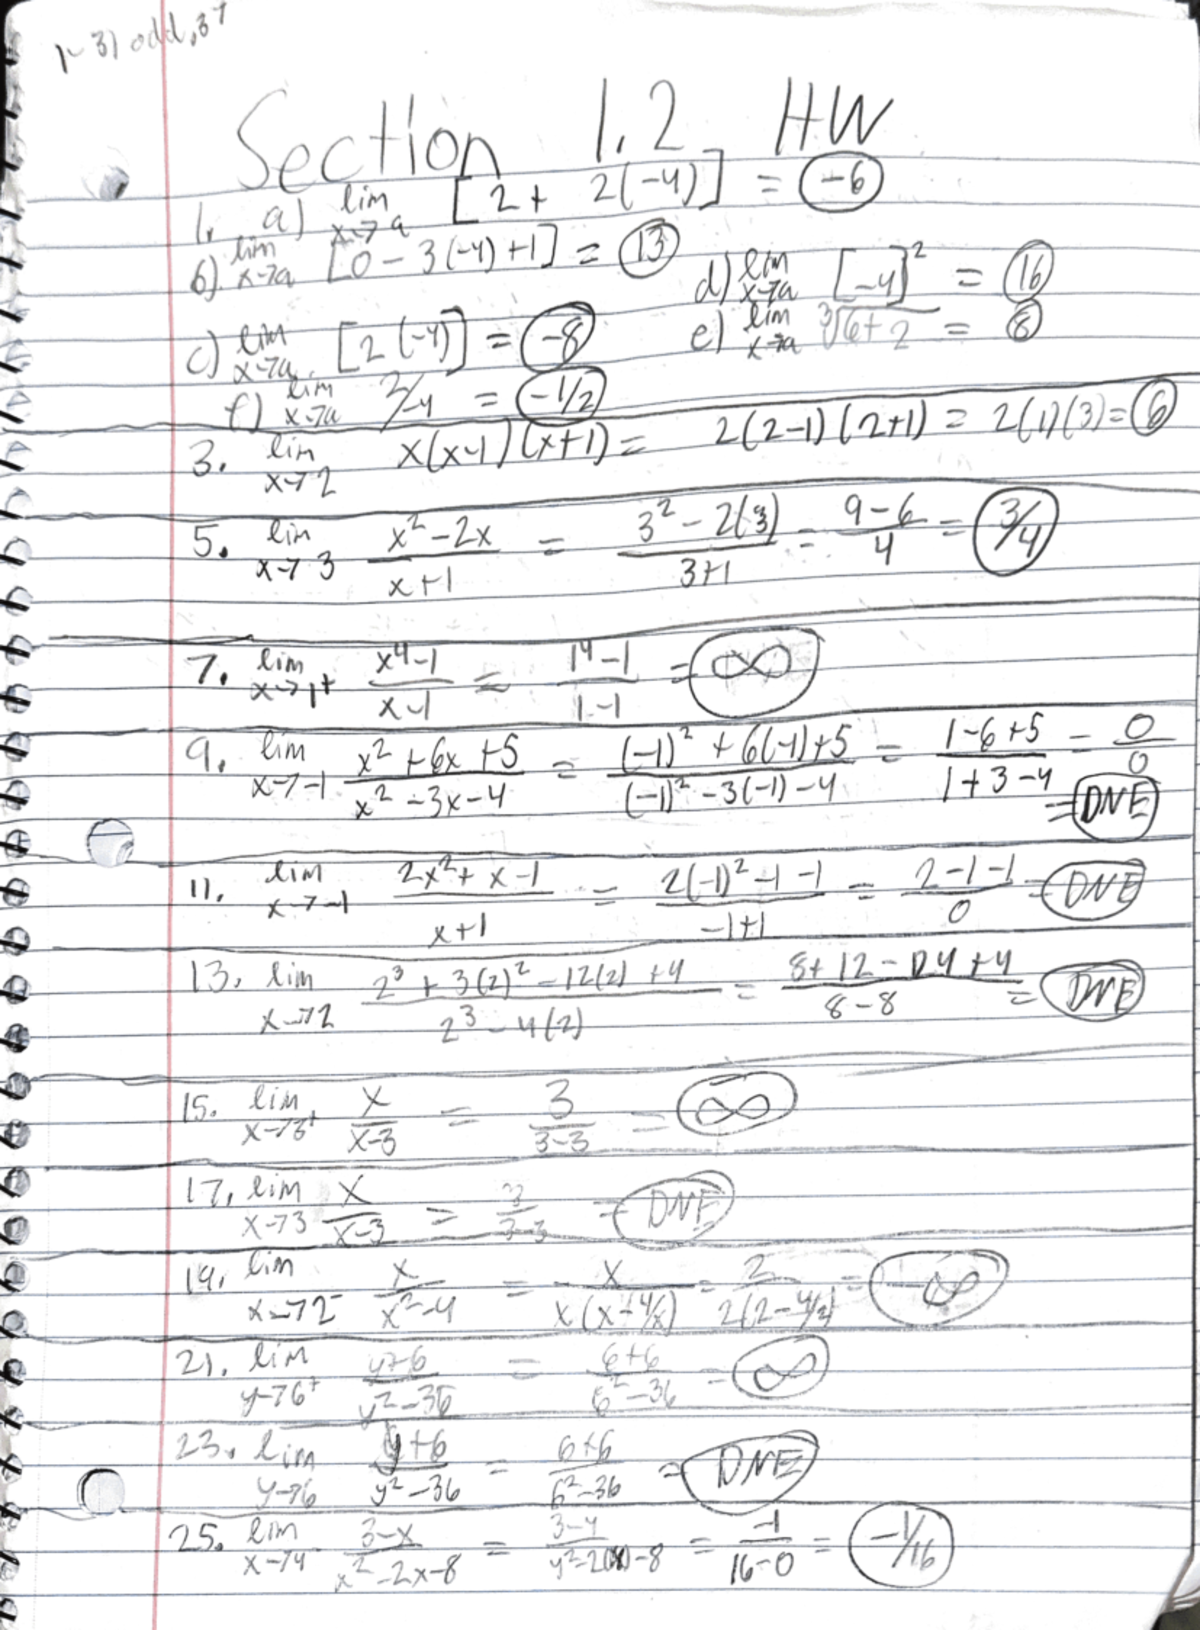 1-31 odd, 37
Section 1.2 HW
1. a) lim x→a [2 + 2(-4)] = -6
b) lim x→a [0 - 3(-4) + 1] = 13
d) lim x→a [-4]² = 16
c) lim x→a [2(-4)] = -8
e) lim x→a ³√6+2 = 8
f) lim x→a 2/-4 = -1/2
3. lim x→2 x(x-1)(x+1) = 2(2-1)(2+1) = 2(1)(3) = 6
5. lim x→3 x²-2x / x+1 = 3²-2(3) / 3+1 = 9-6 / 4 = 3/4
7. lim x→1⁺ x⁴-1 / x-1 = 1⁴-1 / 1-1 = ∞
9. lim x→-1 x²+6x+5 / x²-3x-4 = (-1)²+6(-1)+5 / (-1)²-3(-1)-4 = 1-6+5 / 1+3-4 = 0/0
= DNE
11. lim x→-1 2x²+x-1 / x+1 = 2(-1)²-1-1 / -1+1 = 2-1-1 / 0 = DNE
13. lim x→2 2³+3(2)²-12(2)+4 / 2³-4(2) = 8+12-24+4 / 8-8 = DNE
15. lim x→3⁺ x / x-3 = 3 / 3-3 = ∞
17. lim x→3 x / x-3 = 3 / 3-3 = DNE
19. lim x→2⁻ x / x²-4 = x / x(x-4/x) = 2 / 2(2-4/2) = -∞
21. lim y→6⁺ y+6 / y²-36 = 6+6 / 6²-36 = ∞
23. lim y→6 y+6 / y²-36 = 6+6 / 6²-36 = DNE
25. lim x→4 3-x / x²-2x-8 = 3-4 / 4²-2(4)-8 = -1 / 16-0 = -1/16